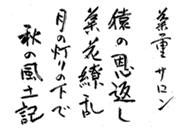 葉重サロン
猿の恩返し
菜花繚乱
月の灯りの下で
秋の風土記